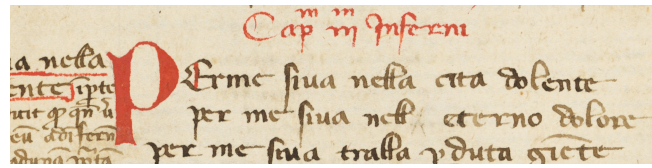 Capm iiim Inferni
PErme siua nella cita dolente
per me siua nell eterno dolore
per me siua tralla pduta giēte
a nella
ente